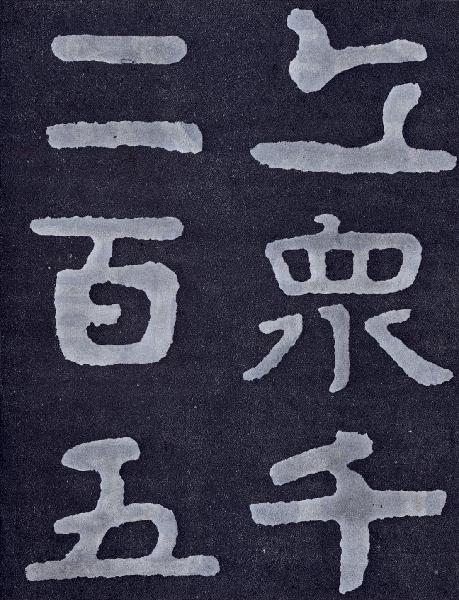 丘衆千
二百五